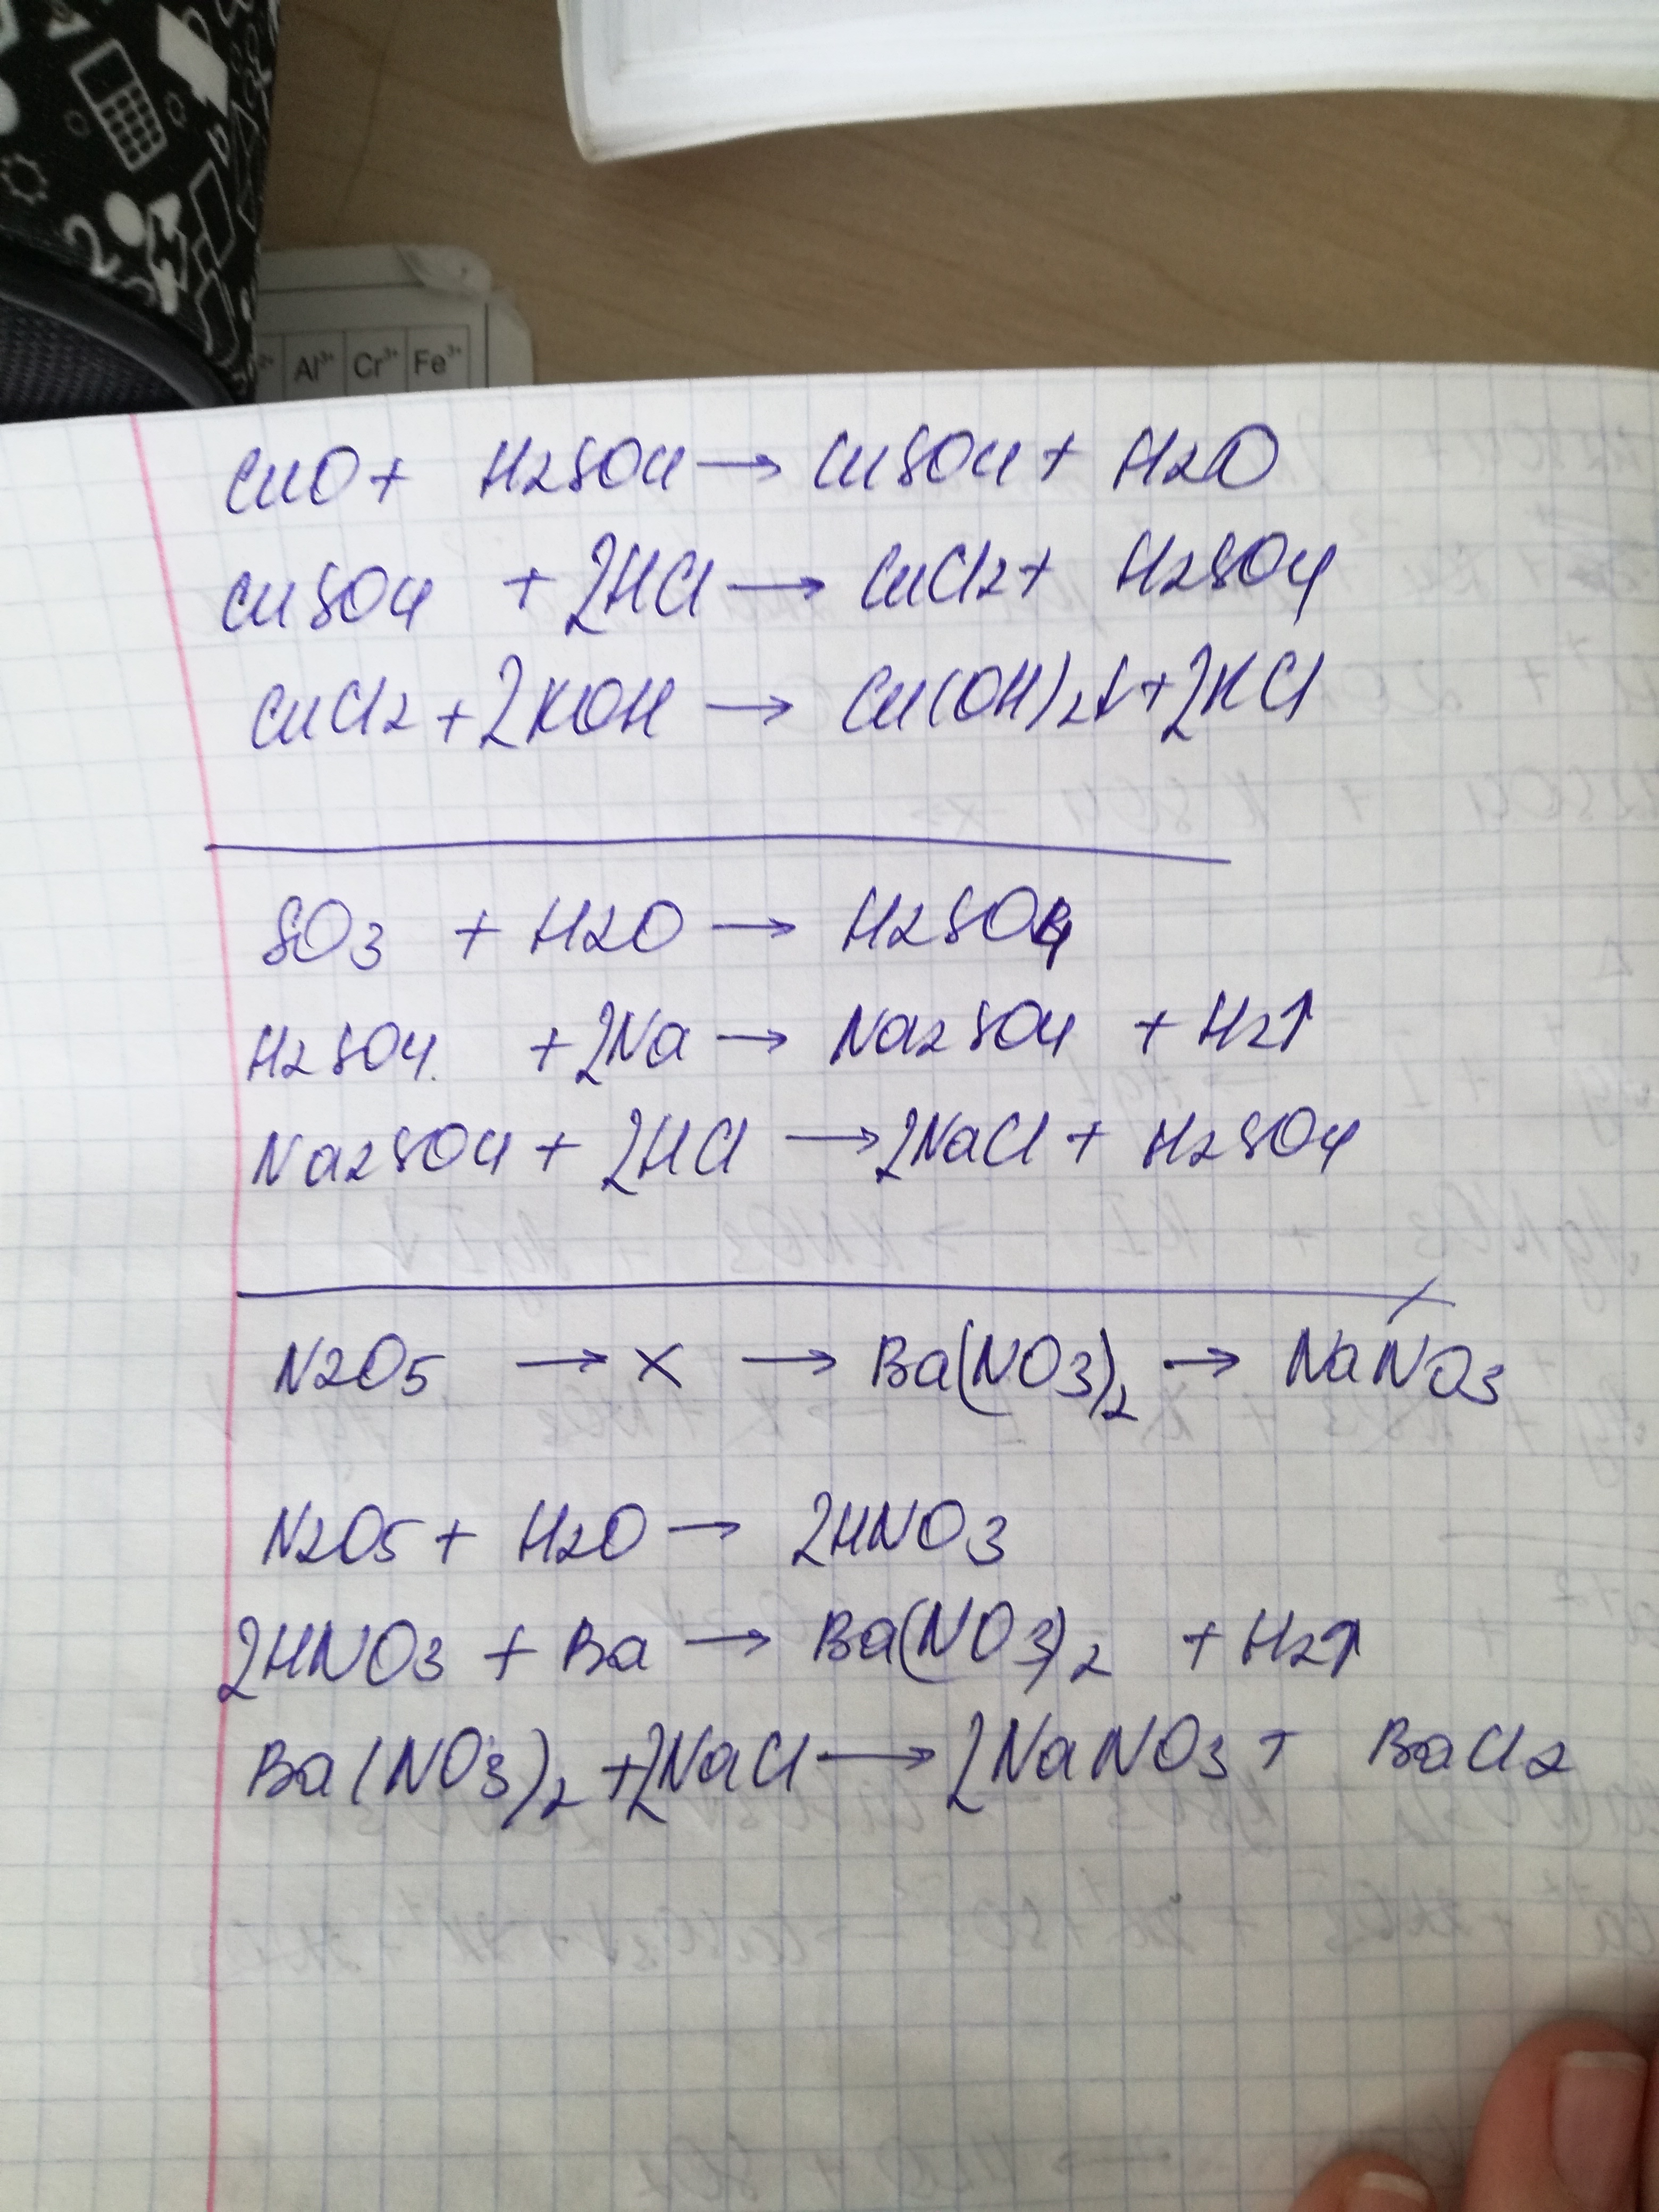 2
Al³⁺ Cr³⁺ Fe³⁺
CuO + H2SO4 → CuSO4 + H2O
CuSO4 + 2HCl → CuCl2 + H2SO4
CuCl2 + 2KOH → Cu(OH)2↓ + 2KCl
SO3 + H2O → H2SO4
H2SO4. + 2Na → Na2SO4 + H2↑
Na2SO4 + 2HCl → 2NaCl + H2SO4
N2O5 → X → Ba(NO3)2 → NaNO3
N2O5 + H2O → 2HNO3
2HNO3 + Ba → Ba(NO3)2 + H2↑
Ba(NO3)2 + 2NaCl → 2NaNO3 + BaCl2